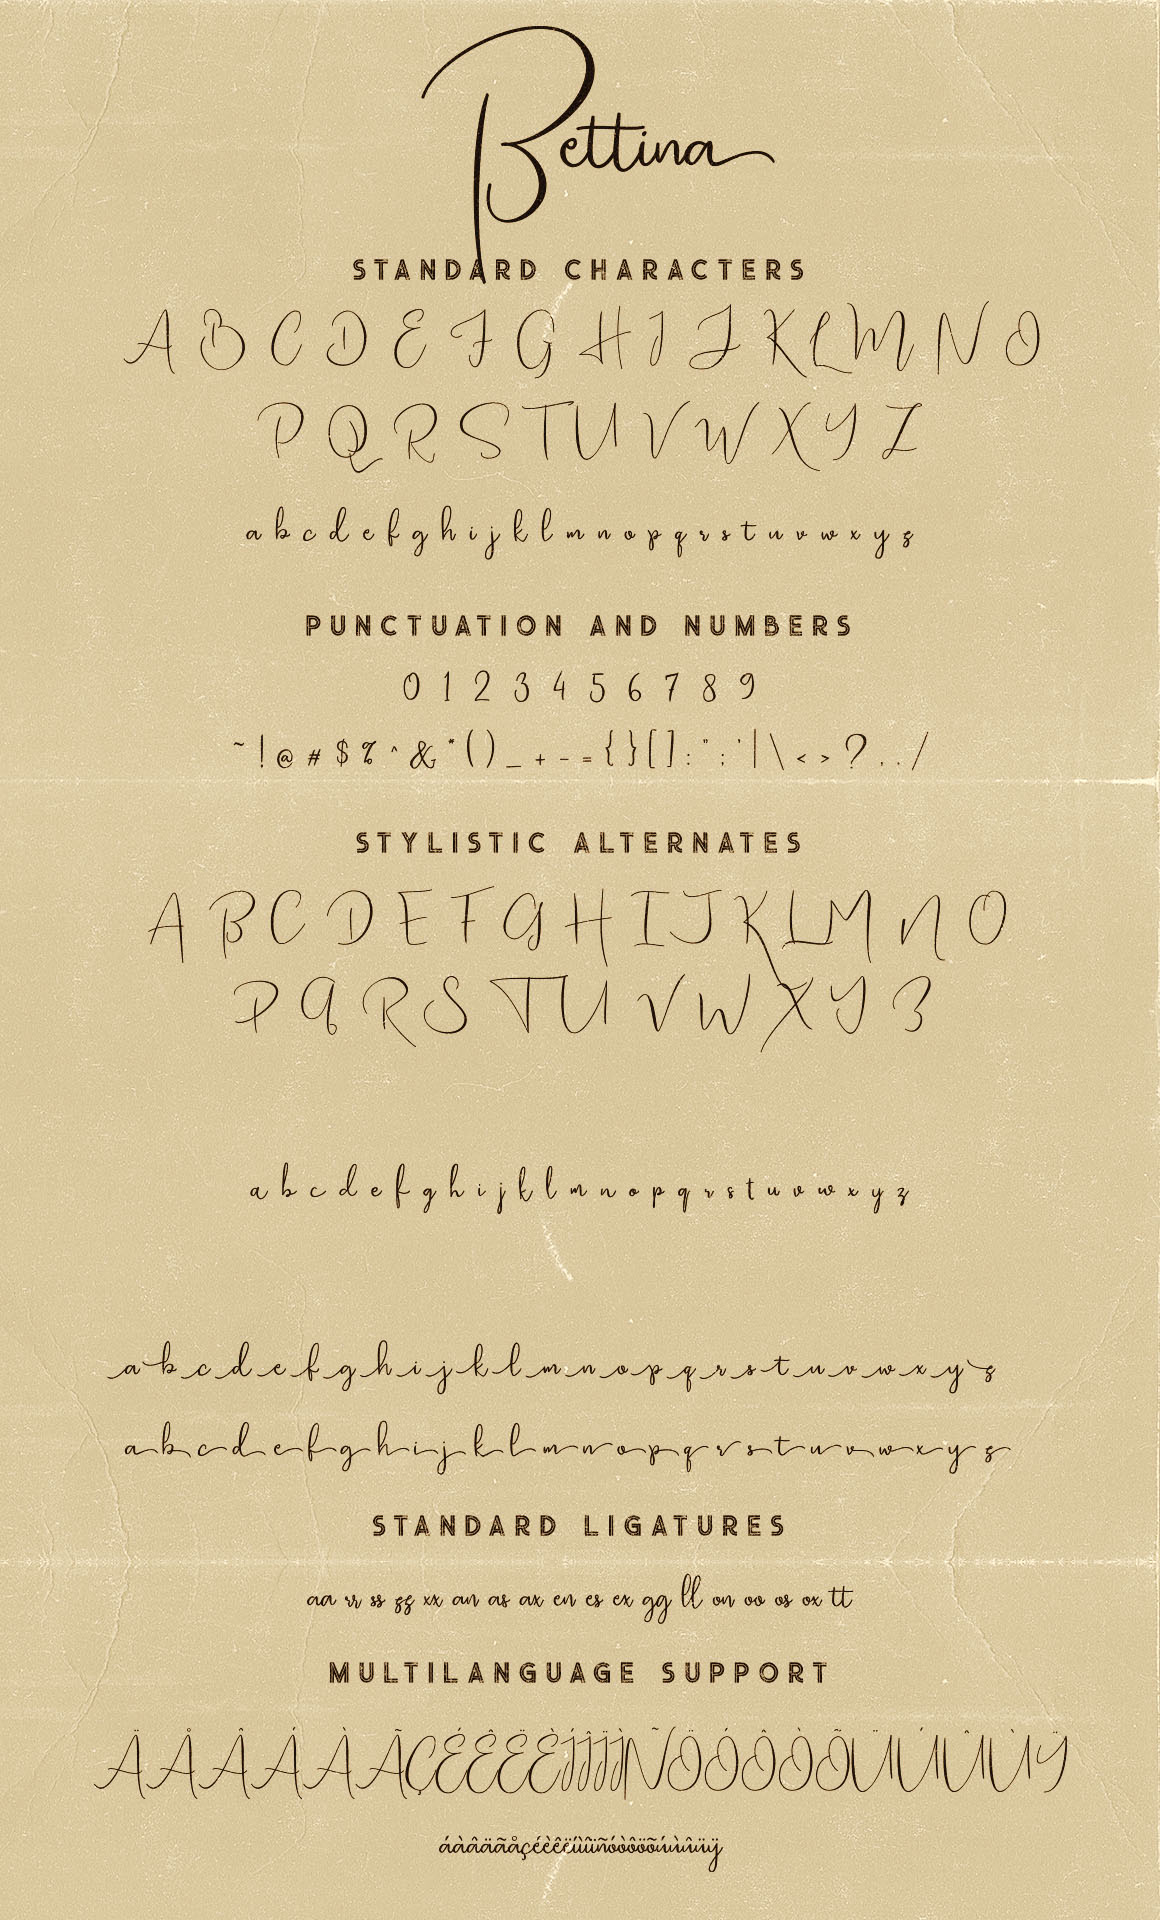 Bettina
STANDARD CHARACTERS
A B C D E F G H I J K L M N O
P Q R S T U V W X Y Z
a b c d e f g h i j k l m n o p q r s t u v w x y z
PUNCTUATION AND NUMBERS
0 1 2 3 4 5 6 7 8 9
~ ! @ # $ % ^ & * ( ) _ + - = { } [ ] : " ; ' | \ < > ? , . /
STYLISTIC ALTERNATES
A B C D E F G H I J K L M N O
P Q R S T U V W X Y Z
a b c d e f g h i j k l m n o p q r s t u v w x y z
a b c d e f g h i j k l m n o p q r s t u v w x y z
a b c d e f g h i j k l m n o p q r s t u v w x y z
STANDARD LIGATURES
aa rr ss zz xx an as ax en es ex gg ll on oo os ox tt
MULTILANGUAGE SUPPORT
ÄÅÂÁÀÃÇÉÊËÈÍÎÏÌÑÖÓÔÒÕÜÚÛÙŸ
áàâäãåçéèêëíìîïñóòôöõúùûüÿ